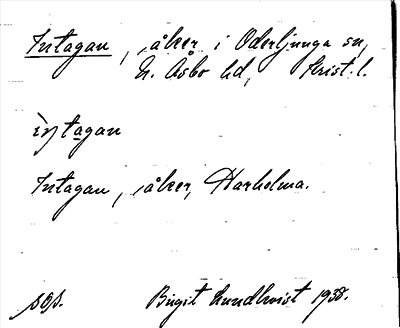 Intagan, åker i Oderljunga sn,
N. Åsbo hd, Krist. l.
Intagan, åker, Harholma.
sep. Birgit Lundkvist 1938.